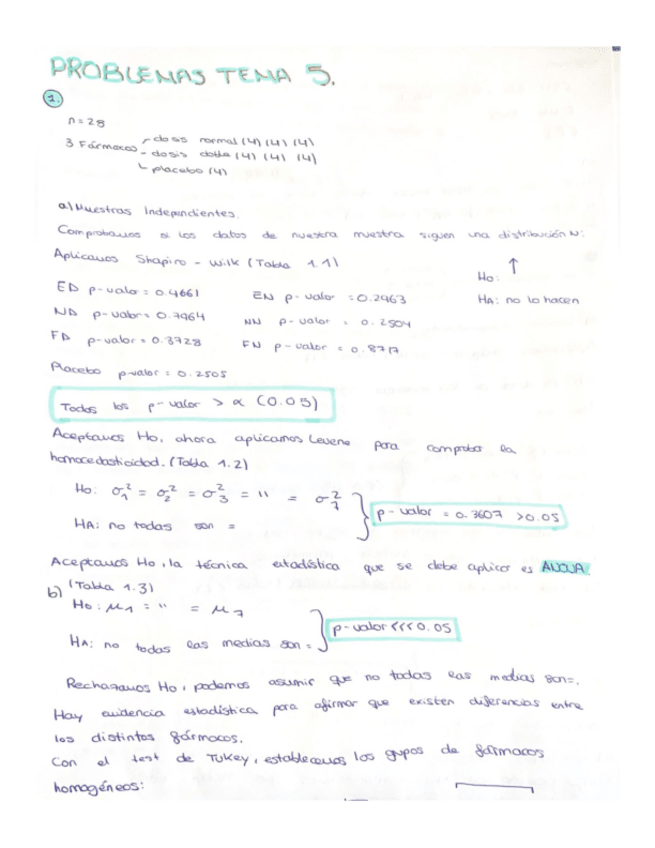 PROBLEMAS TEMA 5.
1.
n = 28
3 Fármacos - dosis normal (4) (4) (4)
- dosis doble (4) (4) (4)
placebo (4)
a) Muestras Independientes.
Comprobamos si los datos de nuestra muestra siguen una distribución N:
Aplicamos Shapiro - Wilk (Tabla 1.1) ↑
Ho:
ED p-valor = 0.4661 EN p-valor = 0.2963 HA: no lo hacen
ND p-valor = 0.7964 NN p-valor = 0.2504
FD p-valor = 0.3728 FN p-valor = 0.8717
Placebo p-valor = 0.2505
Todos los p-valor > α (0.05)
Aceptamos Ho, ahora aplicamos Levene para comprobar la
homocedasticidad. (Tabla 1.2)
Ho: σ₁² = σ₂² = σ₃² = " = σ₇²
p-valor = 0.3607 > 0.05
HA: no todas son =
Aceptamos Ho, la técnica estadística que se debe aplicar es ANOVA
(Tabla 1.3)
b) Ho: μ₁ = " = μ₇
p-valor <<< 0.05
HA: no todas las medias son =
Rechazamos Ho, podemos asumir que no todas las medias son =.
Hay evidencia estadística para afirmar que existen diferencias entre
los distintos fármacos.
Con el test de Tukey, establecemos los grupos de fármacos
homogéneos: